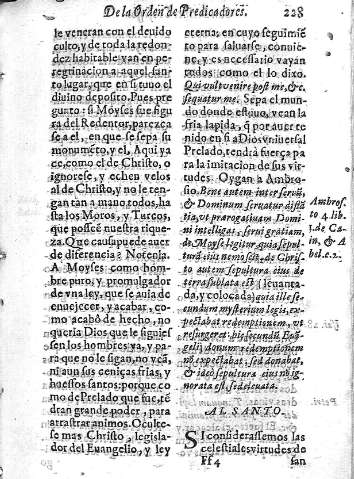 De la Orden de Predicadores. 228
le veneran con el deuido
culto, y de toda la redon-
dez habitable van en pe-
regrinacion a aquel san-
to lugar, que en si tuuo el
diuino deposito. Pues pre
gunto: si Moyses fue figu
ra del Redentor, parezca
se a el, en que se sepa su
monumẽto, y el, Aqui ya
ze, como el de Christo, o
ignorese, y echen velos
al de Christo, y no le ren-
gan tan a mano todos, ha
sta los Moros, y Turcos,
que posseẽ nuestra rique-
za. Que causa puede auer
de diferencia? Notenla.
A Moyses como hom-
bre puro, y promulgador
de vna ley, que se auia de
enuejecer, y acabar, co-
mo acabò de hecho, no
queria Dios que le siguies
sen los hombres ya, y pa-
ra que no le sigan, no veã
ni aun sus ceniças frias, y
huessos santos: porque co
mo de Prelado que fue, tẽ
dran grande poder, para
arrastrar animos. Oculte-
se mas Christo, legisla-
dor del Euangelio, y ley
eterna; en cuyo seguimiẽ
to para saluarse, conuie-
ne, y es necessario vayan
todos como el lo dixo.
Qui vult venire post me, &c.
sequatur me. Sepa el mun
do donde estuuo, vean la
fria lapida, q̃ por auer te
nido en si a Dios vniuersal
Prelado, tendrà fuerça pa
ra la imitacion de sus vir-
tudes. Oygan a Ambro-
sio. Bene autem inter seruũ,
& Dominum seruatur distã
tia, vt prærogatiuam Domi
ni intelligas, serui gratiam,
de Moyse legitur quia sepul
turã eius nemo scit: de Chri-
sto autem sepultura eius de
terra sublata est (leuanta-
da, y colocada) quia ille se-
cundum mysterium legis, ex-
pectabat redemptionem, vt
resurgeret: hic secundũ Euã
gelij donum redemptionem
nõ expectabat, sed donabat,
& ideò sepultura eius nõ ig-
norata est, sed eleuata.
Ambros.
to 4. lib.
1. de Ca-
in, & A
bel. c. 2.
AL SANTO.
SI considerassemos las
celestiales virtudes de
Ff 4 san